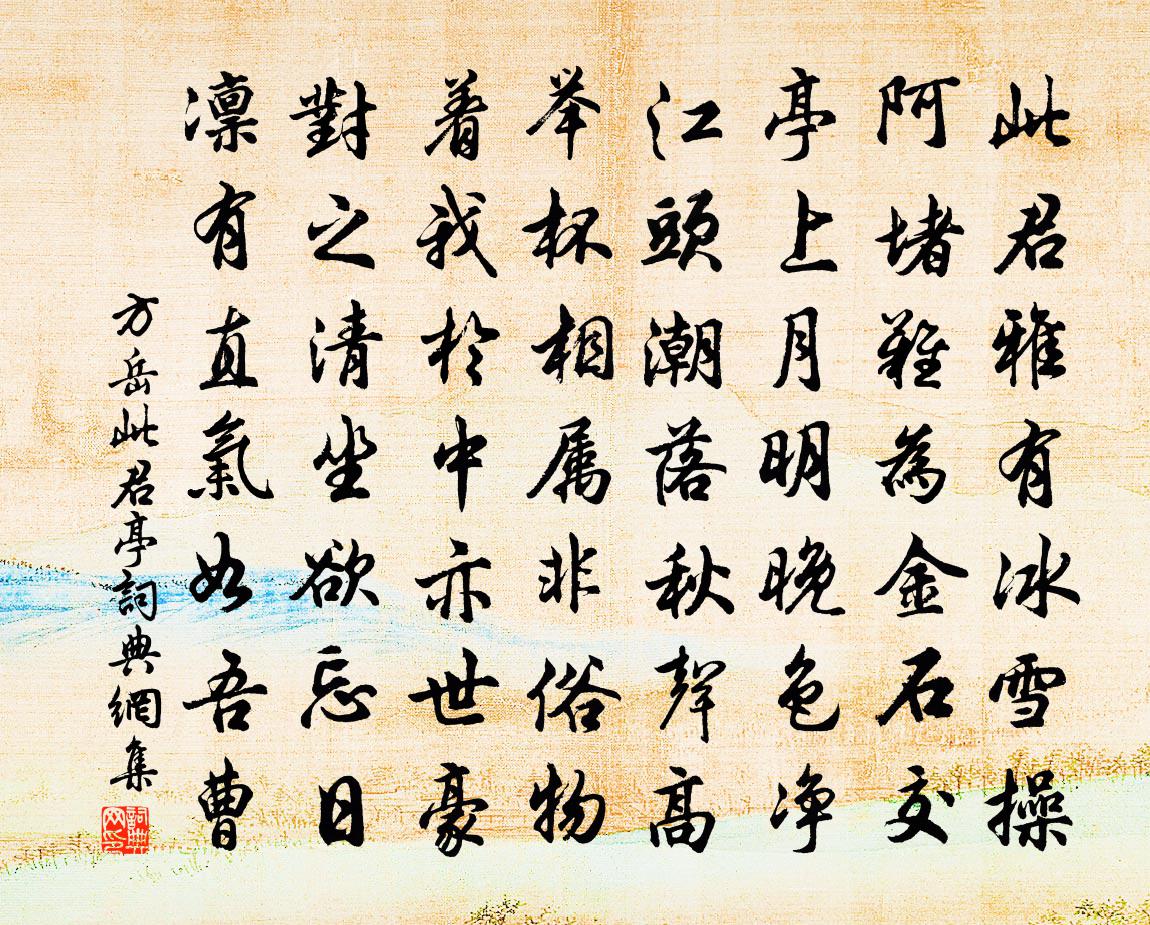 此君雅有冰雪操
阿堵難為金石交
亭上月明晚色净
江頭潮落秋聲高
举杯相属非俗物
着我於中亦世豪
對之清坐欲忘日
凛有直氣如吾曹
方岳此君亭詞典網集
詞典網印